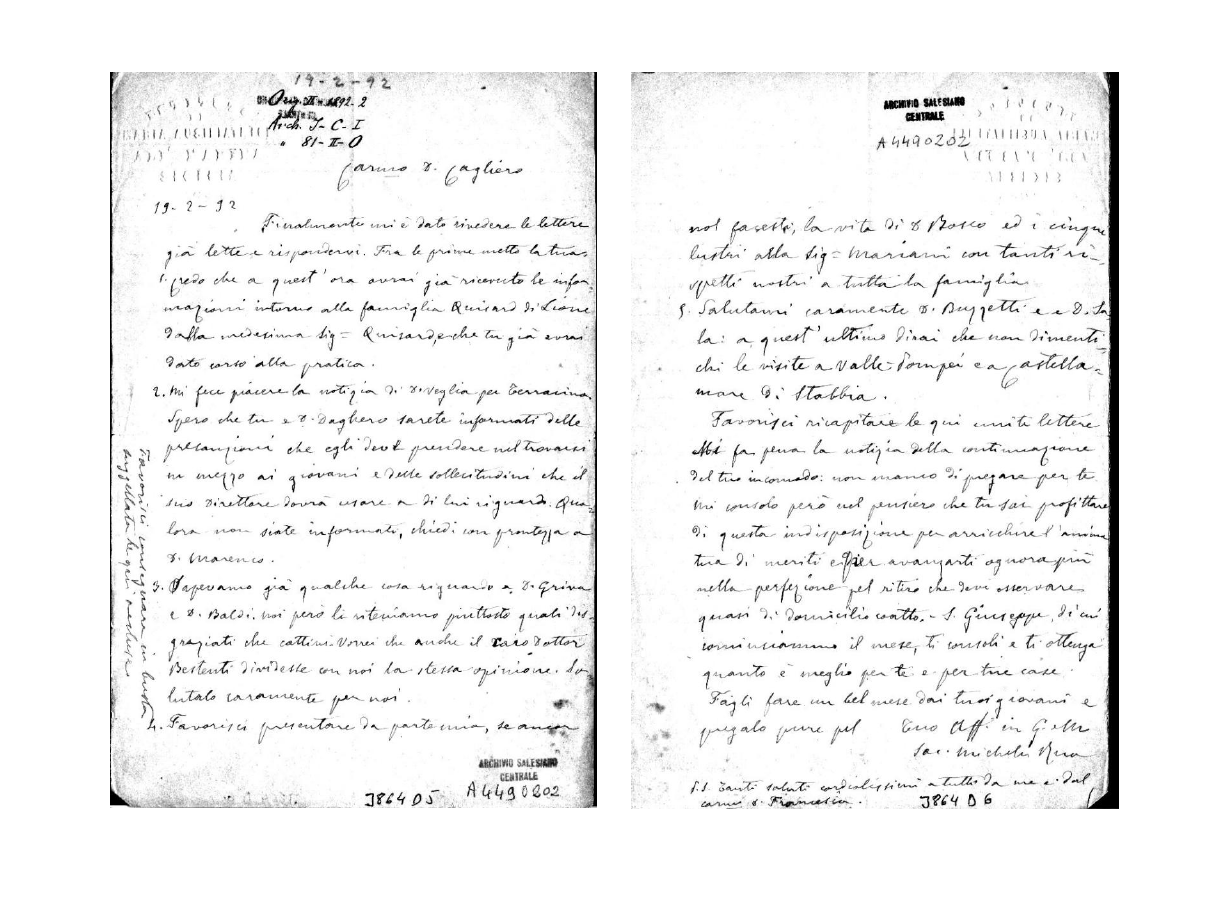 19-2-92
Org. II 1892-2
Arch. S-C-I
" 81-II-O
Carmo D. Cagliero
19-2-92
Finalmente mi è dato rivedere le lettere
già lette e rispondervi. Fra le prime metto la tua.
1. Credo che a quest'ora avrai già ricevuto le infor-
mazioni intorno alla famiglia Quisard di Lione
dalla medesima Sig= Quisard, e che tu già avrai
dato corso alla pratica.
2. Mi fece piacere la notizia di D. Veglia per Terracina.
Spero che tu e D. Daghero sarete informati delle
precauzioni che egli deve prendere nel trovarsi
in mezzo ai giovani e delle sollecitudini che il
suo Direttore dovrà usare a di lui riguardo. Qua-
lora non siate informati, chiedi con prontezza a
D. Marenco.
3. Sapevamo già qualche cosa riguardo a D. Griva
e D. Baldi, noi però li riteniamo piuttosto quali dis-
graziati che cattivi. Vorrei che anche il caro Dottor
Bestenti dividesse con noi la stessa opinione. Sa-
lutalo caramente per noi.
4. Favorisci presentare da parte mia, se ancor
Favorisci consegnare in busta
suggellata le qui rachiuse
ARCHIVIO SALESIANO
CENTRALE
A4490202
3864 D5
ARCHIVIO SALESIANO
CENTRALE
A4490202
nol facesti, la vita di D Bosco ed i cinque
lustri alla Sig= Mariani con tanti ri-
spetti nostri a tutta la famiglia
5. Salutami caramente D. Buzzetti e e D. Sa-
la: a quest'ultimo dirai che non dimenti-
chi le visite a Valle-Pompei e a Castella-
mare di Stabbia.
Favorisci ricapitare le qui unite lettere
Mi fa pena la notizia della continuazione
del tuo incomodo: non manco di pregare per te
mi consolo però nel pensiero che tu sai profittare
di questa indisposizione per arricchire l'anima
tua di meriti e per avanzarti ognora più
nella perfezione pel ritiro che devi osservare
quasi di domicilio coatto. - S. Giuseppe, di cui
cominciammo il mese, ti consoli e ti ottenga
quanto è meglio per te e per tue case.
Fagli fare un bel mese dai tuoi giovani e
pregalo pure pel Tuo Aff. in G. e M
Sac. Michele Rua
P.S. Tanti saluti cordialissimi a tutti da me e dal
carmo D. Francesia.
3864 D6